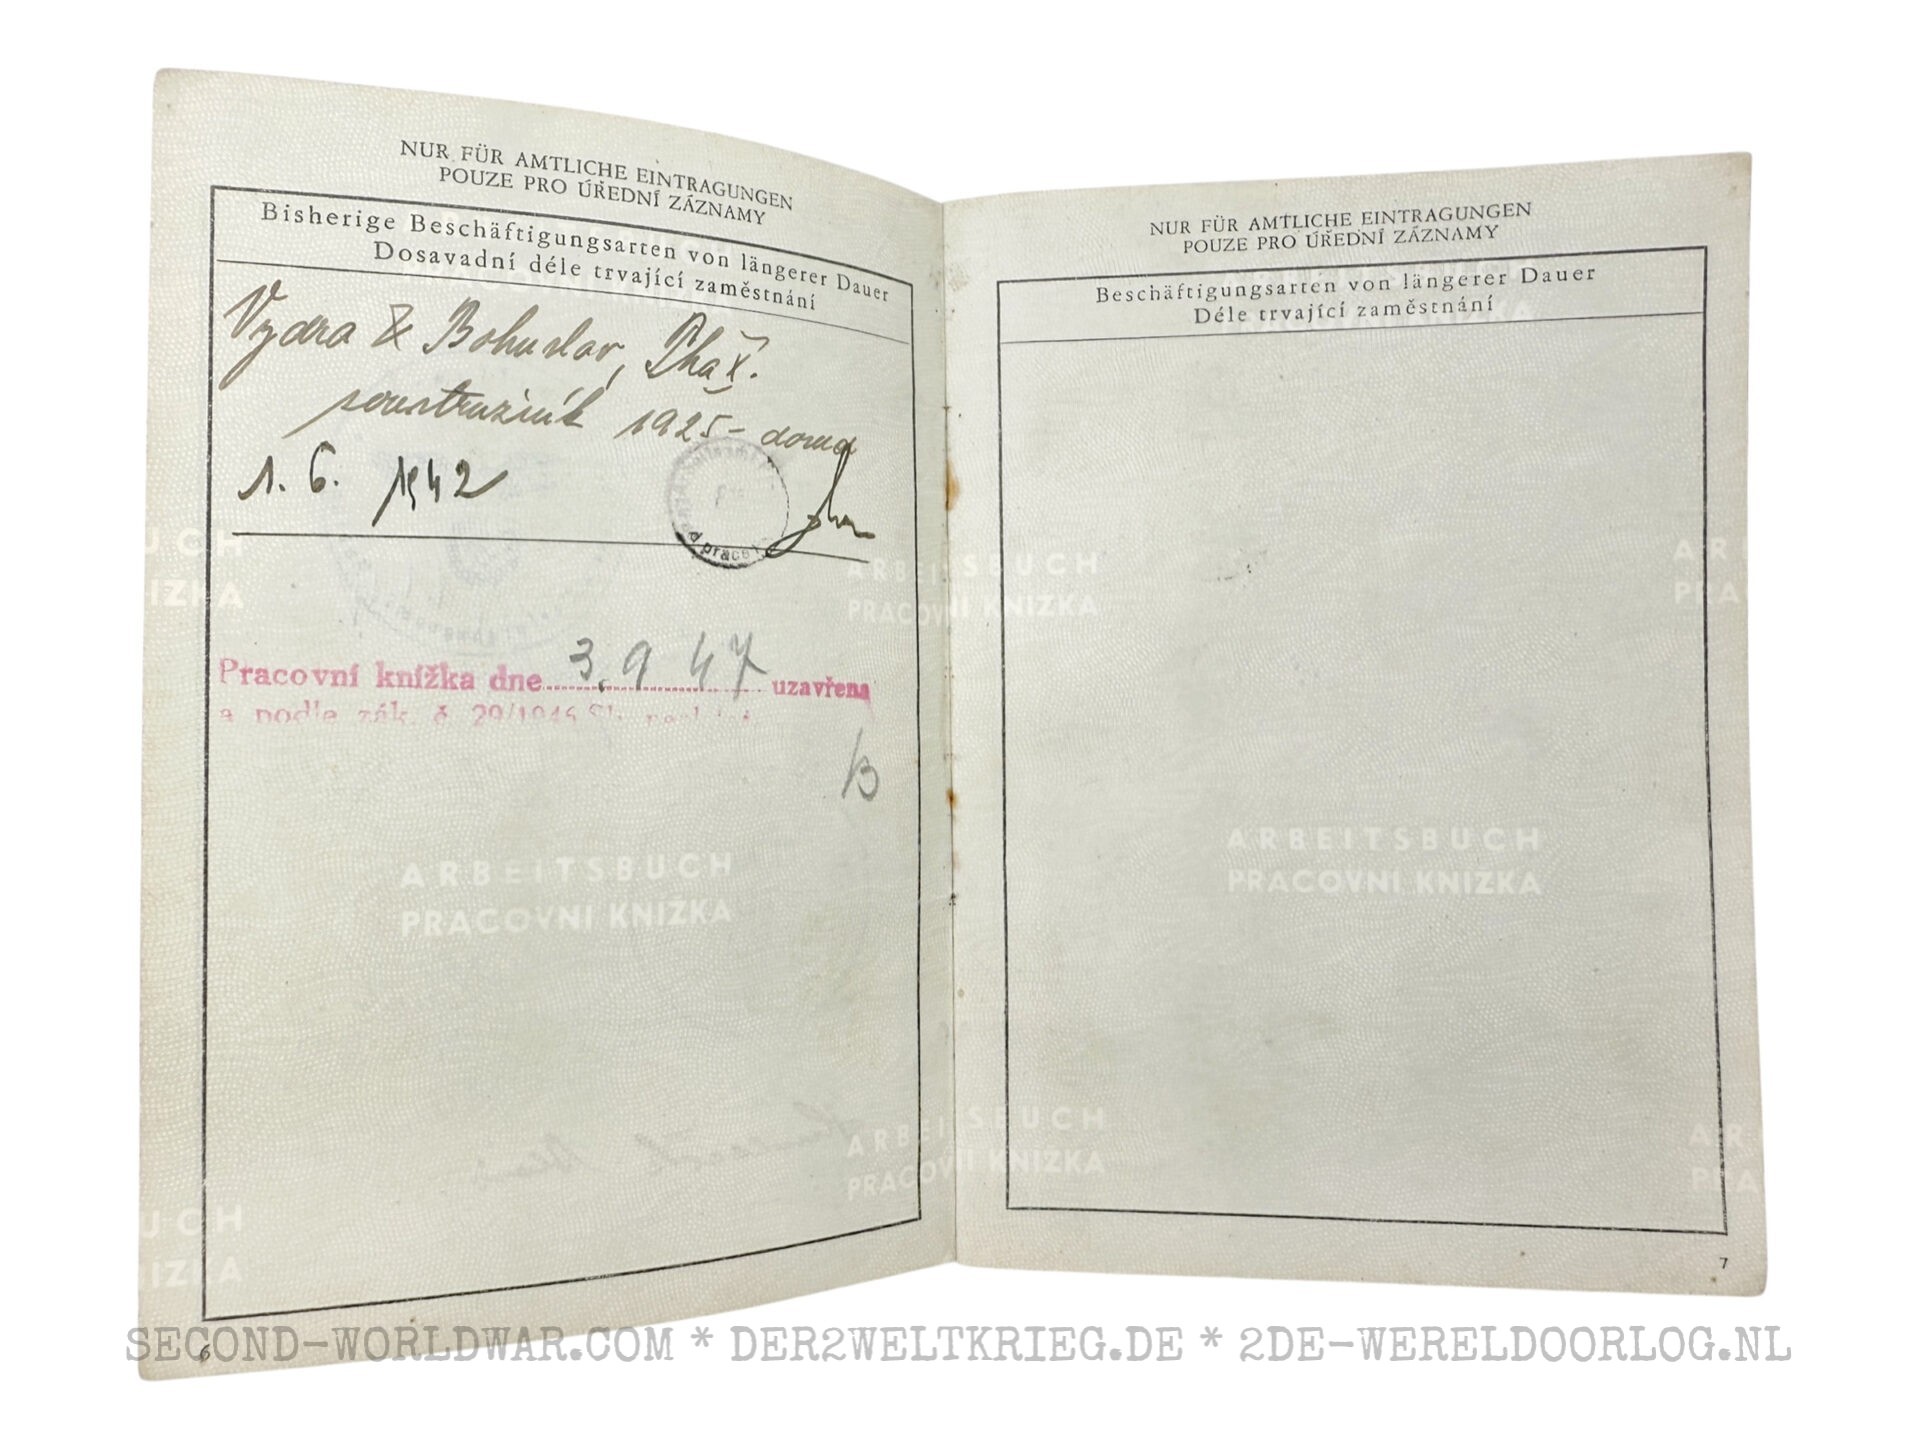 NUR FÜR AMTLICHE EINTRAGUNGEN
POUZE PRO ÚŘEDNÍ ZÁZNAMY
Bisherige Beschäftigungsarten von längerer Dauer
Dosavadní déle trvající zaměstnání
Vydra & Bohuslav, Pha X.
soustružník 1925 - doma
1. 6. 1942
práce
Pracovní knížka dne 3. 9 47 uzavřena
a podle zák. č 29/1946 Sb.
B
ARBEITSBUCH
PRACOVNI KNIŽKA
6
NUR FÜR AMTLICHE EINTRAGUNGEN
POUZE PRO ÚŘEDNÍ ZÁZNAMY
Beschäftigungsarten von längerer Dauer
Déle trvající zaměstnání
ARBEITSBUCH
PRACOVNI KNIŽKA
ARBEITSBUCH
PRACOVNI KNIŽKA
ARBEITSBUCH
PRACOVNI KNIŽKA
7
SECOND-WORLDWAR.COM * DER2WELTKRIEG.DE * 2DE-WERELDOORLOG.NL